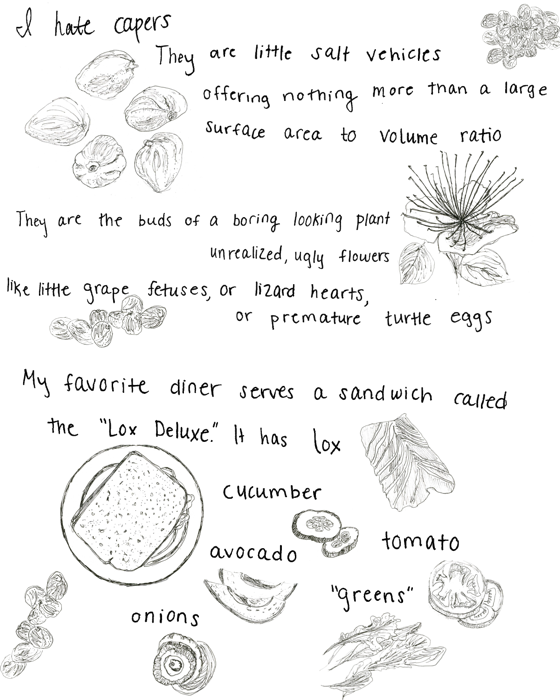 I hate capers
They are little salt vehicles
offering nothing more than a large
surface area to volume ratio
They are the buds of a boring looking plant
unrealized, ugly flowers
like little grape fetuses, or lizard hearts,
or premature turtle eggs
My favorite diner serves a sandwich called
the "Lox Deluxe." It has lox
cucumber
avocado
tomato
"greens"
onions